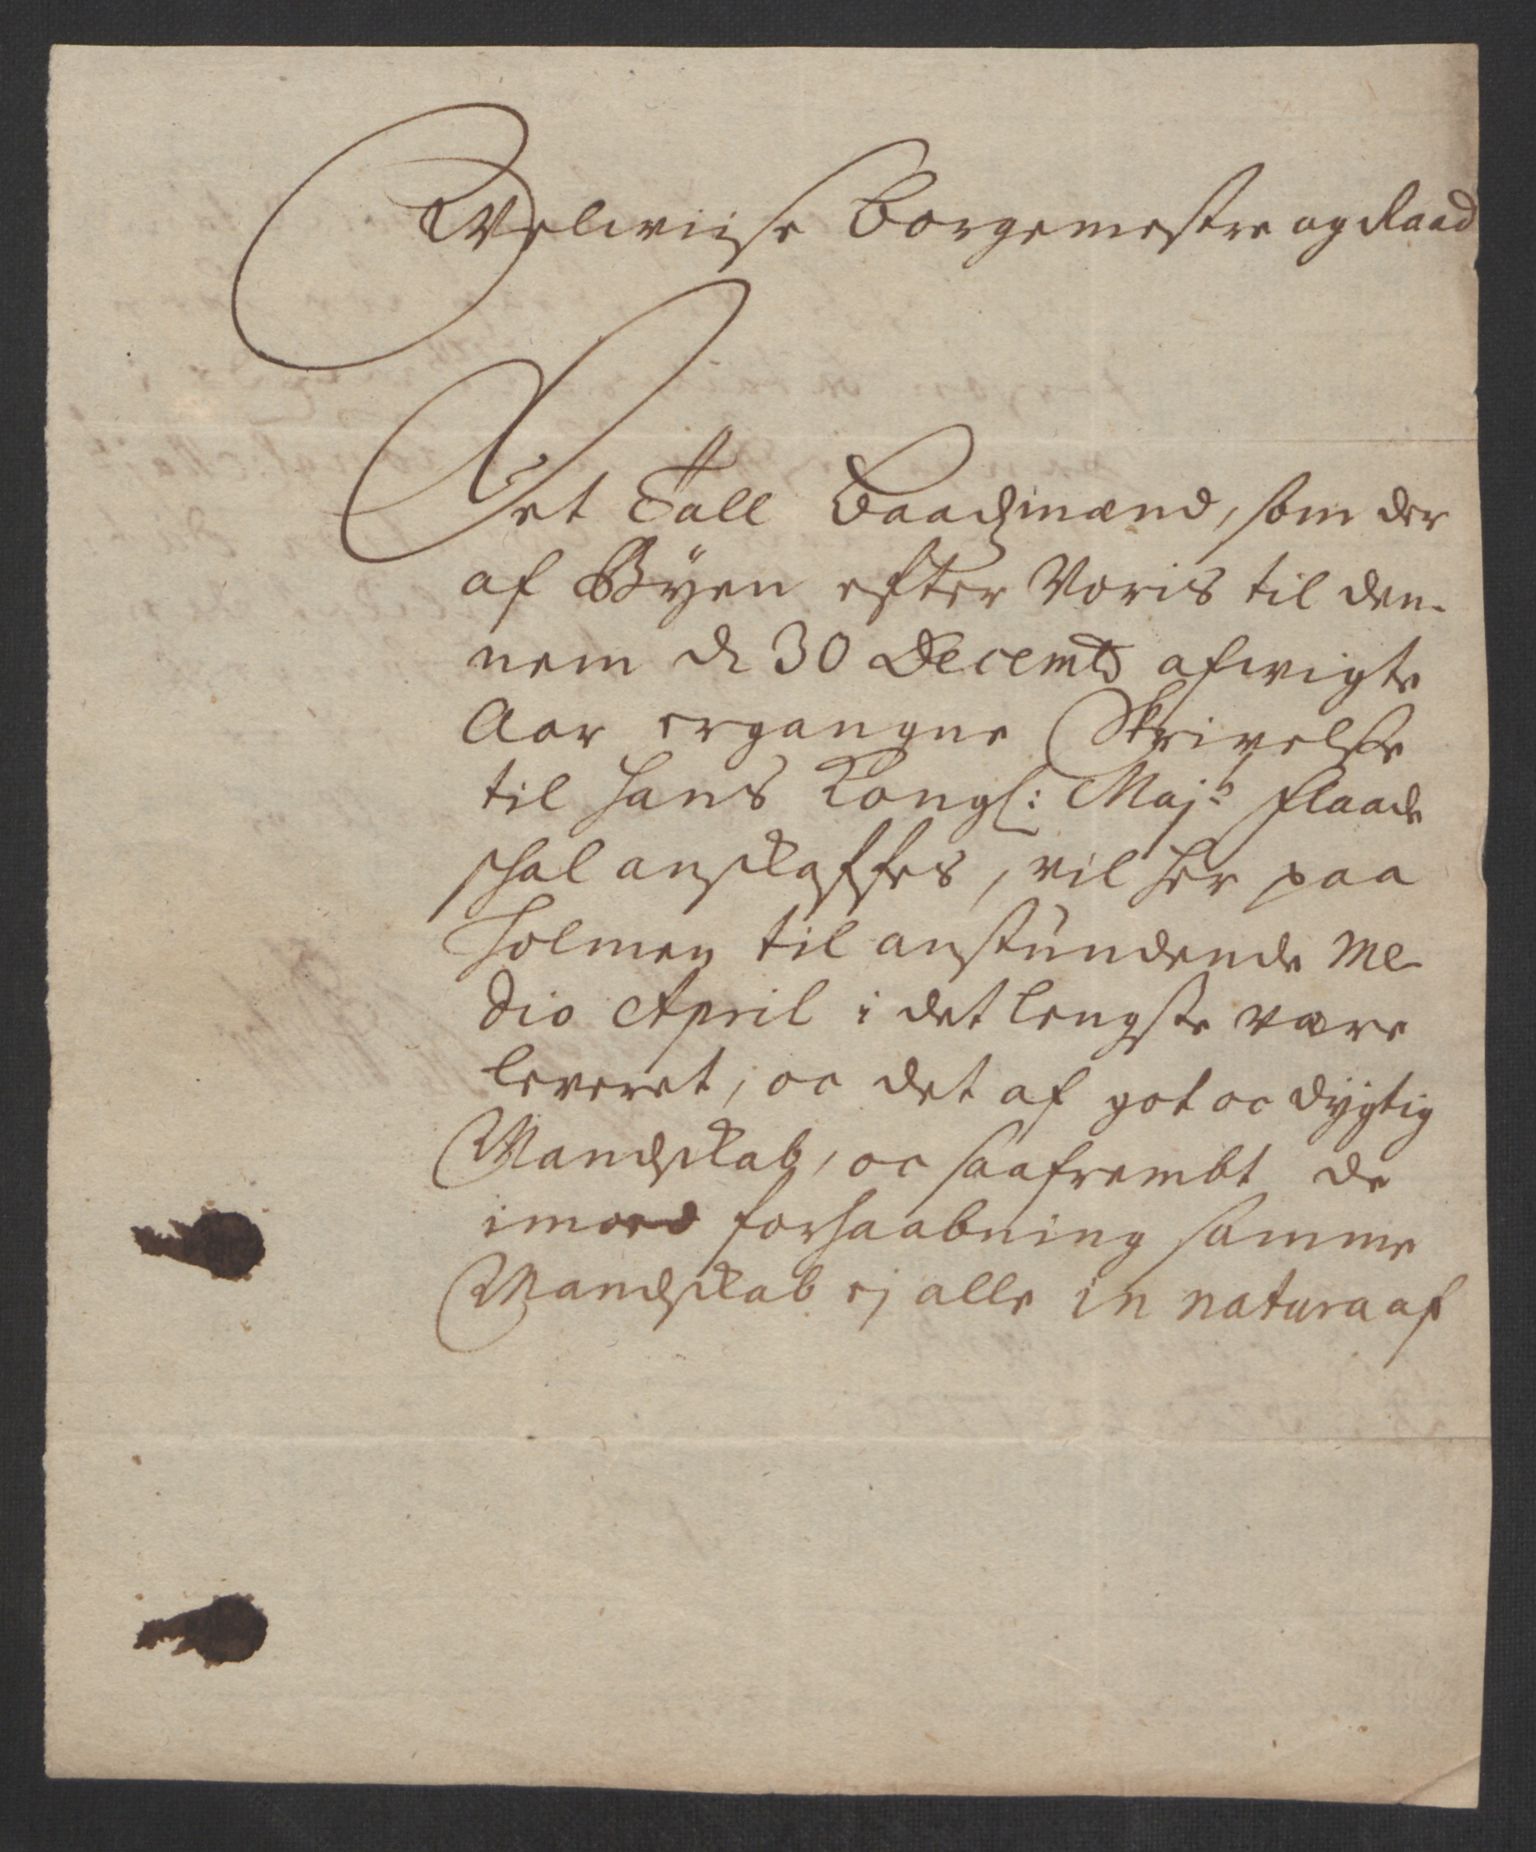 Welwiise Borgemestre og Raad
Det Tall Baadzmænd, som der
af Bÿen efter Voris til den-
nem d 30 Decemb afwigte
Aar ergangne Skrivelse
til Hans Kongl: Majts Flaade
skal anskaffes, vil her paa
Holmen til anstundende Me-
dio April i det lengste være
leveret, oc det af got oc dygtig
Mandskab, oc saafrembt de
imod forhaabning samme
Mandskab ej alle in natura af